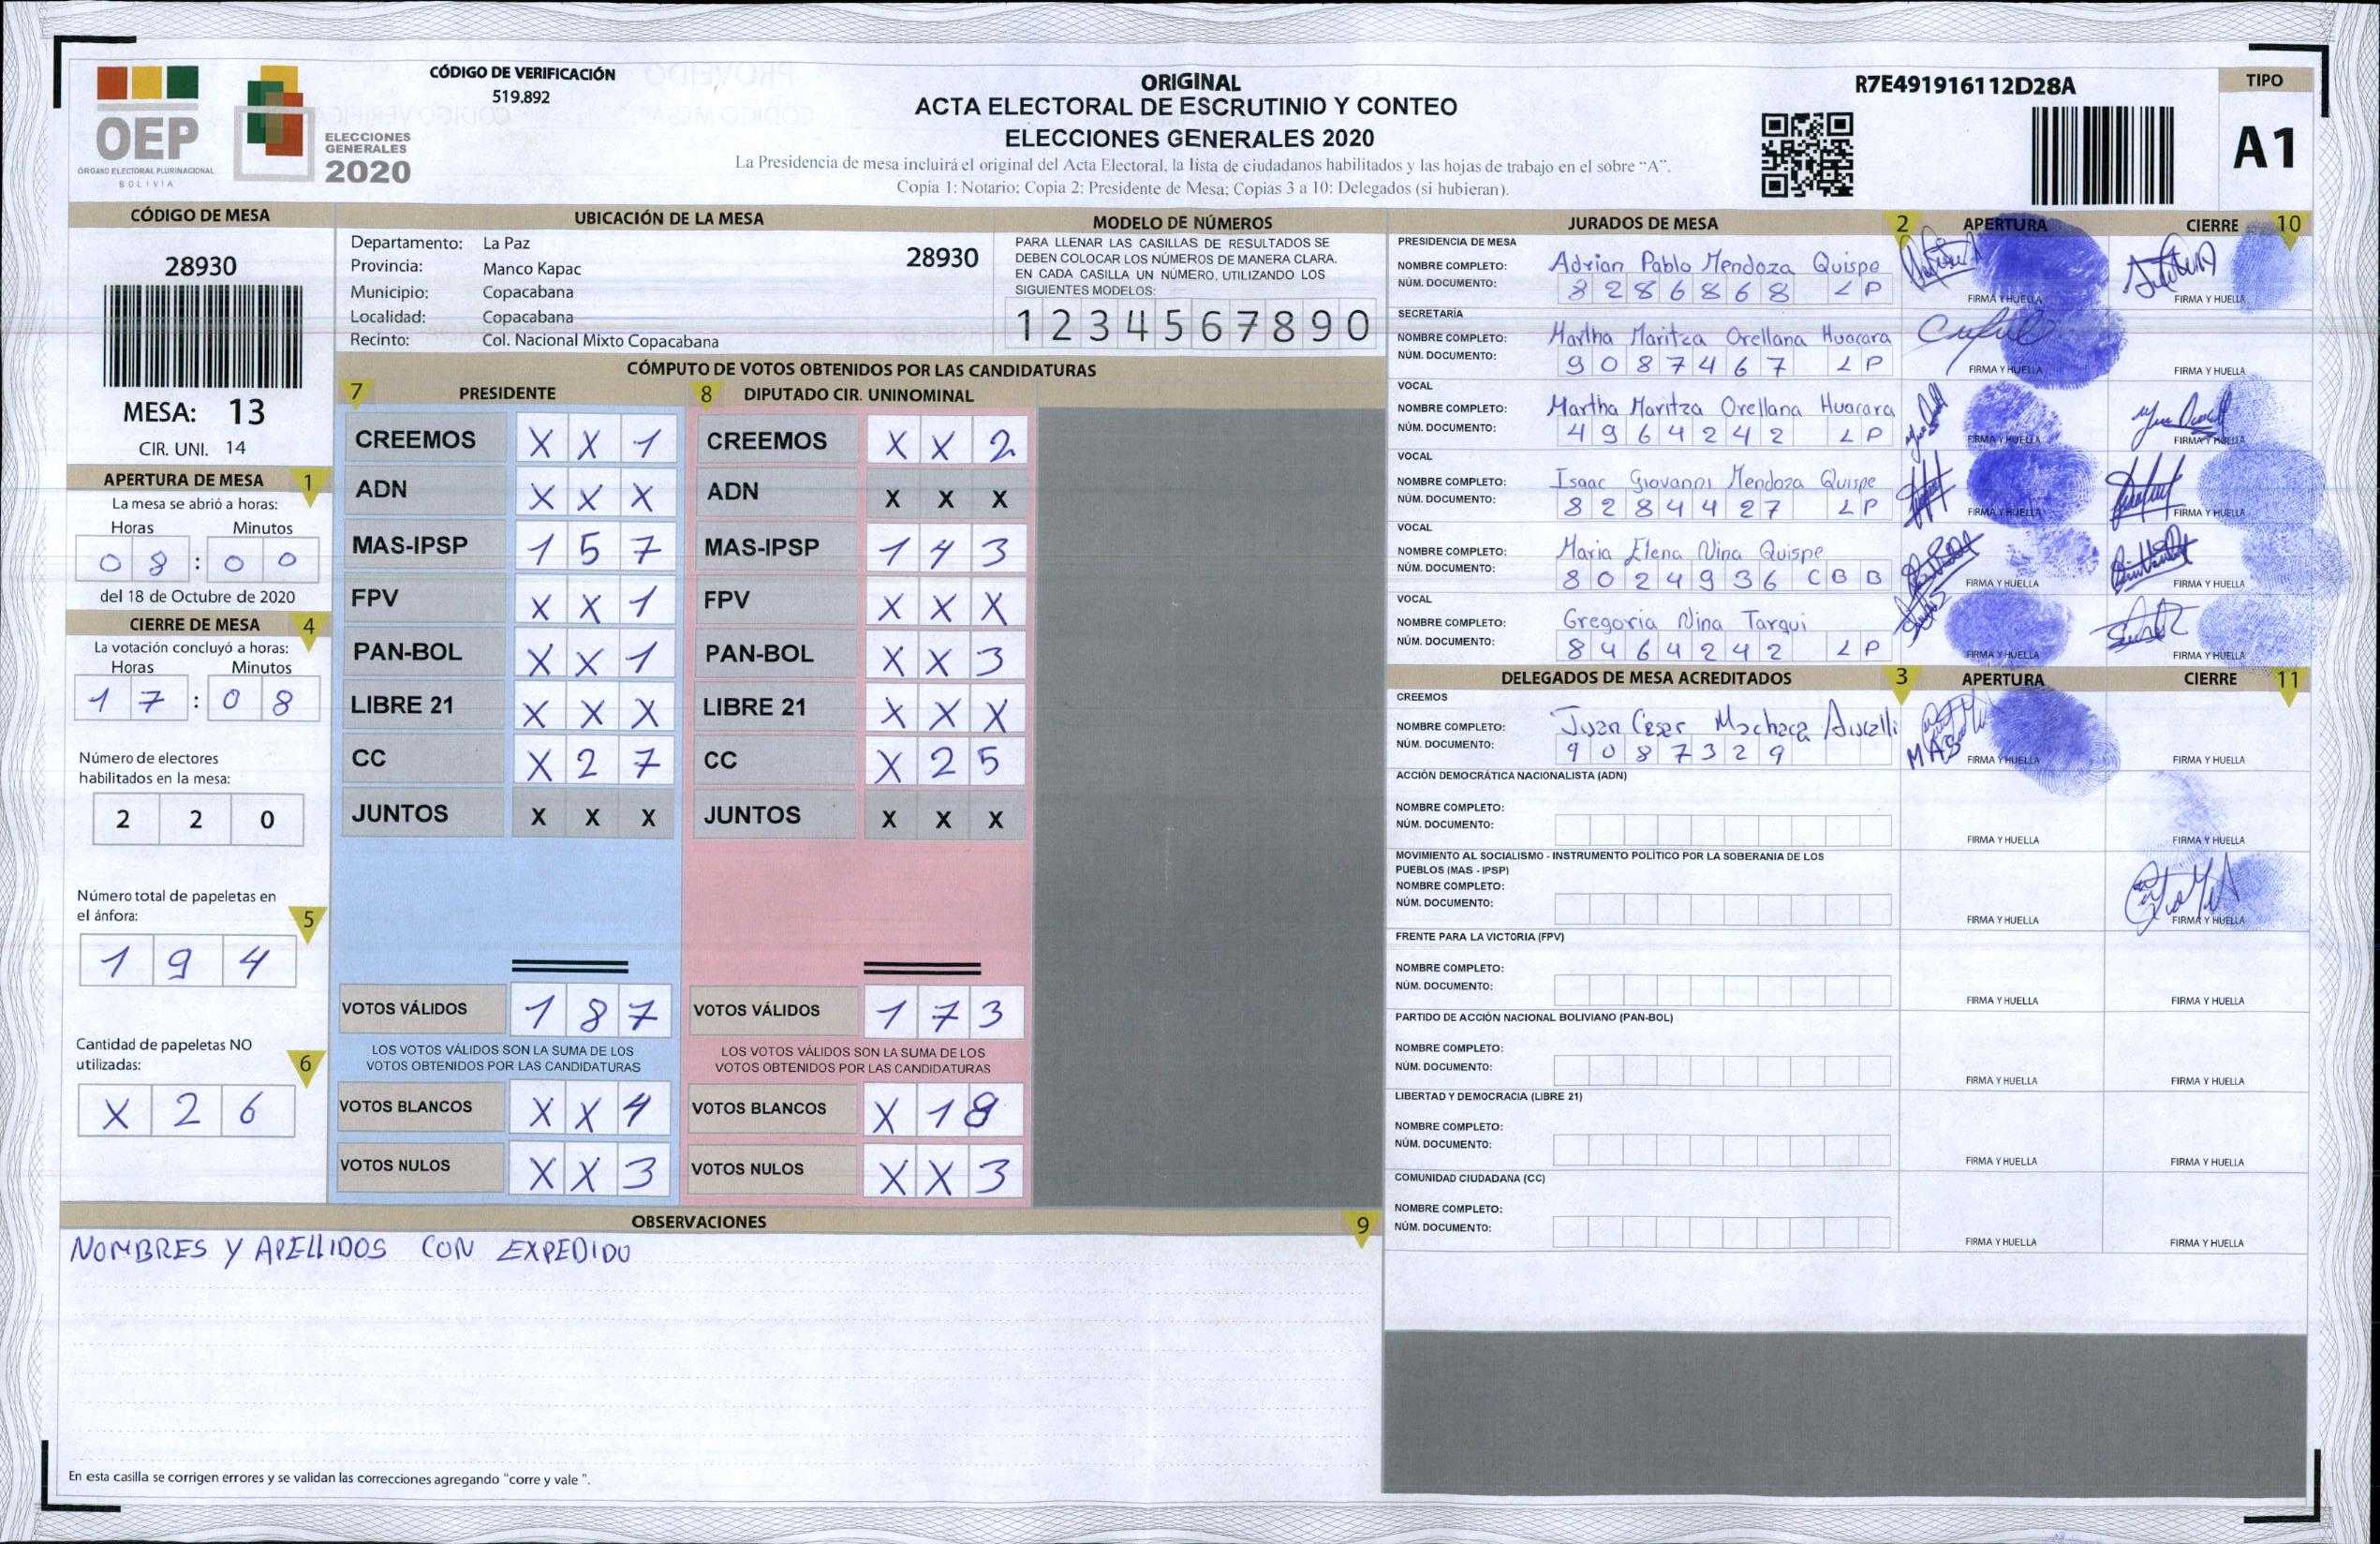 OEP
ÓRGANO ELECTORAL PLURINACIONAL
BOLIVIA
ELECCIONES
GENERALES
2020
CÓDIGO DE VERIFICACIÓN
519.892
ORIGINAL
ACTA ELECTORAL DE ESCRUTINIO Y CONTEO
ELECCIONES GENERALES 2020
La Presidencia de mesa incluirá el original del Acta Electoral, la lista de ciudadanos habilitados y las hojas de trabajo en el sobre "A".
Copia 1: Notario; Copia 2: Presidente de Mesa; Copias 3 a 10: Delegados (si hubieran).
R7E491916112D28A
TIPO
A1
CÓDIGO DE MESA
28930
MESA: 13
CIR. UNI. 14
APERTURA DE MESA 1
La mesa se abrió a horas:
Horas Minutos
0 8 : 0 0
del 18 de Octubre de 2020
CIERRE DE MESA 4
La votación concluyó a horas:
Horas Minutos
1 7 : 0 8
Número de electores
habilitados en la mesa:
2 2 0
Número total de papeletas en
el ánfora: 5
1 9 4
Cantidad de papeletas NO
utilizadas: 6
X 2 6
UBICACIÓN DE LA MESA
Departamento: La Paz 28930
Provincia: Manco Kapac
Municipio: Copacabana
Localidad: Copacabana
Recinto: Col. Nacional Mixto Copacabana
MODELO DE NÚMEROS
PARA LLENAR LAS CASILLAS DE RESULTADOS SE
DEBEN COLOCAR LOS NÚMEROS DE MANERA CLARA.
EN CADA CASILLA UN NÚMERO, UTILIZANDO LOS
SIGUIENTES MODELOS:
1 2 3 4 5 6 7 8 9 0
CÓMPUTO DE VOTOS OBTENIDOS POR LAS CANDIDATURAS
7 PRESIDENTE 8 DIPUTADO CIR. UNINOMINAL
CREEMOS X X 1 CREEMOS X X 2
ADN X X X ADN X X X
MAS-IPSP 1 5 7 MAS-IPSP 1 4 3
FPV X X 1 FPV X X X
PAN-BOL X X 1 PAN-BOL X X 3
LIBRE 21 X X X LIBRE 21 X X X
CC X 2 7 CC X 2 5
JUNTOS X X X JUNTOS X X X
VOTOS VÁLIDOS 1 8 7 VOTOS VÁLIDOS 1 7 3
LOS VOTOS VÁLIDOS SON LA SUMA DE LOS LOS VOTOS VÁLIDOS SON LA SUMA DE LOS
VOTOS OBTENIDOS POR LAS CANDIDATURAS VOTOS OBTENIDOS POR LAS CANDIDATURAS
VOTOS BLANCOS X X 4 VOTOS BLANCOS X 1 8
VOTOS NULOS X X 3 VOTOS NULOS X X 3
OBSERVACIONES 9
NOMBRES Y APELLIDOS CON EXPEDIDO
En esta casilla se corrigen errores y se validan las correcciones agregando "corre y vale ".
JURADOS DE MESA 2 APERTURA CIERRE 10
PRESIDENCIA DE MESA
NOMBRE COMPLETO: Adrian Pablo Mendoza Quispe
NÚM. DOCUMENTO: 8 2 8 6 8 6 8 LP
FIRMA Y HUELLA FIRMA Y HUELLA
SECRETARÍA
NOMBRE COMPLETO: Martha Maritza Orellana Huacara
NÚM. DOCUMENTO: 9 0 8 7 4 6 7 LP
FIRMA Y HUELLA FIRMA Y HUELLA
VOCAL
NOMBRE COMPLETO: Martha Maritza Orellana Huacara
NÚM. DOCUMENTO: 4 9 6 4 2 4 2 LP
FIRMA Y HUELLA FIRMA Y HUELLA
VOCAL
NOMBRE COMPLETO: Isaac Giovanni Mendoza Quispe
NÚM. DOCUMENTO: 8 2 8 4 4 2 7 LP
FIRMA Y HUELLA FIRMA Y HUELLA
VOCAL
NOMBRE COMPLETO: Maria Elena Nina Quispe
NÚM. DOCUMENTO: 8 0 2 4 9 3 6 C B B
FIRMA Y HUELLA FIRMA Y HUELLA
VOCAL
NOMBRE COMPLETO: Gregoria Nina Tarqui
NÚM. DOCUMENTO: 8 4 6 4 2 4 2 LP
FIRMA Y HUELLA FIRMA Y HUELLA
DELEGADOS DE MESA ACREDITADOS 3 APERTURA CIERRE 11
CREEMOS
NOMBRE COMPLETO: Juan Cesar Machaca
NÚM. DOCUMENTO: 9 0 8 7 3 2 9 MAS
FIRMA Y HUELLA FIRMA Y HUELLA
ACCIÓN DEMOCRÁTICA NACIONALISTA (ADN)
NOMBRE COMPLETO:
NÚM. DOCUMENTO:
FIRMA Y HUELLA FIRMA Y HUELLA
MOVIMIENTO AL SOCIALISMO - INSTRUMENTO POLÍTICO POR LA SOBERANIA DE LOS
PUEBLOS (MAS - IPSP)
NOMBRE COMPLETO:
NÚM. DOCUMENTO:
FIRMA Y HUELLA FIRMA Y HUELLA
FRENTE PARA LA VICTORIA (FPV)
NOMBRE COMPLETO:
NÚM. DOCUMENTO:
FIRMA Y HUELLA FIRMA Y HUELLA
PARTIDO DE ACCIÓN NACIONAL BOLIVIANO (PAN-BOL)
NOMBRE COMPLETO:
NÚM. DOCUMENTO:
FIRMA Y HUELLA FIRMA Y HUELLA
LIBERTAD Y DEMOCRACIA (LIBRE 21)
NOMBRE COMPLETO:
NÚM. DOCUMENTO:
FIRMA Y HUELLA FIRMA Y HUELLA
COMUNIDAD CIUDADANA (CC)
NOMBRE COMPLETO:
NÚM. DOCUMENTO:
FIRMA Y HUELLA FIRMA Y HUELLA